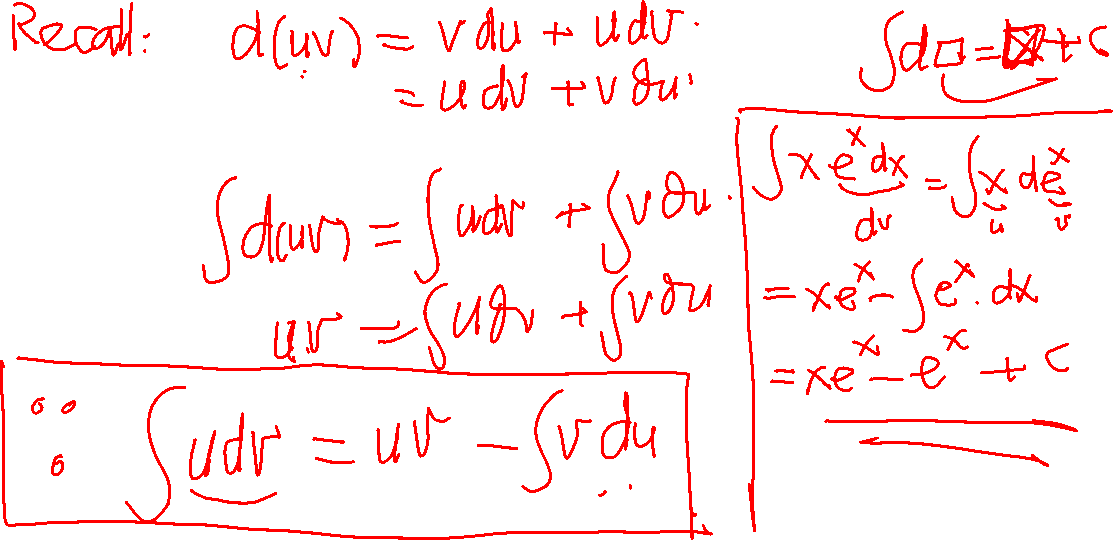 Recall: d(uv) = v du + u dv.
= u dv + v du.
∫d(uv) = ∫u dv + ∫v du.
uv = ∫u dv + ∫v du
∵ ∫u dv = uv − ∫v du
∫d□ = ☒ + C
∫x e^x dx = ∫x de^x
dv u v
= xe^x − ∫e^x · dx
= xe^x − e^x + C